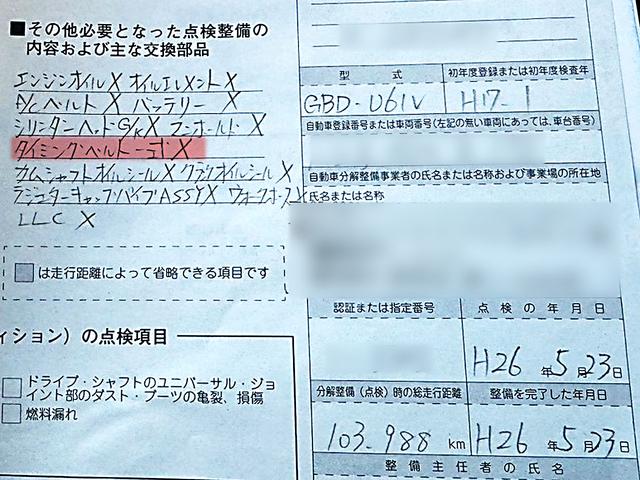 ■その他必要となった点検整備の
内容および主な交換部品
エンジンオイル X オイルエレメント X
A/Cベルト X バッテリー X
シリンダーヘッドG/K X マニホールド X
タイミングベルト一式 X
カムシャフトオイルシール X クランクオイルシール X
ラジエターキャップ パイプASSY X ウォーターホース X
LLC X
は走行距離によって省略できる項目です
ィション）の点検項目
ドライブ・シャフトのユニバーサル・ジョ
イント部のダスト・ブーツの亀裂、損傷
燃料漏れ
型 式
初年度登録または初年度検査年
GBD-U61V
H17-1
自動車登録番号または車両番号(左記の無い車両にあっては、車台番号)
自動車分解整備事業者の氏名または名称および事業場の所在地
氏名または名称
認証または指定番号
点検の年月日
H26 年 5 月 23 日
分解整備（点検）時の総走行距離
整備を完了した年月日
103-988 km
H26 年 5 月 23 日
整備主任者の氏名